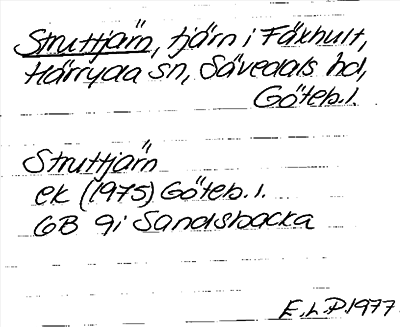 Struttjärn, tjärn i Fäxhult,
Härryda sn, Sävedals hd,
Göteb. l.
Struttjärn
ek (1975) Göteb. l.
6B 9i Sandsbacka
E.L.P. 1977